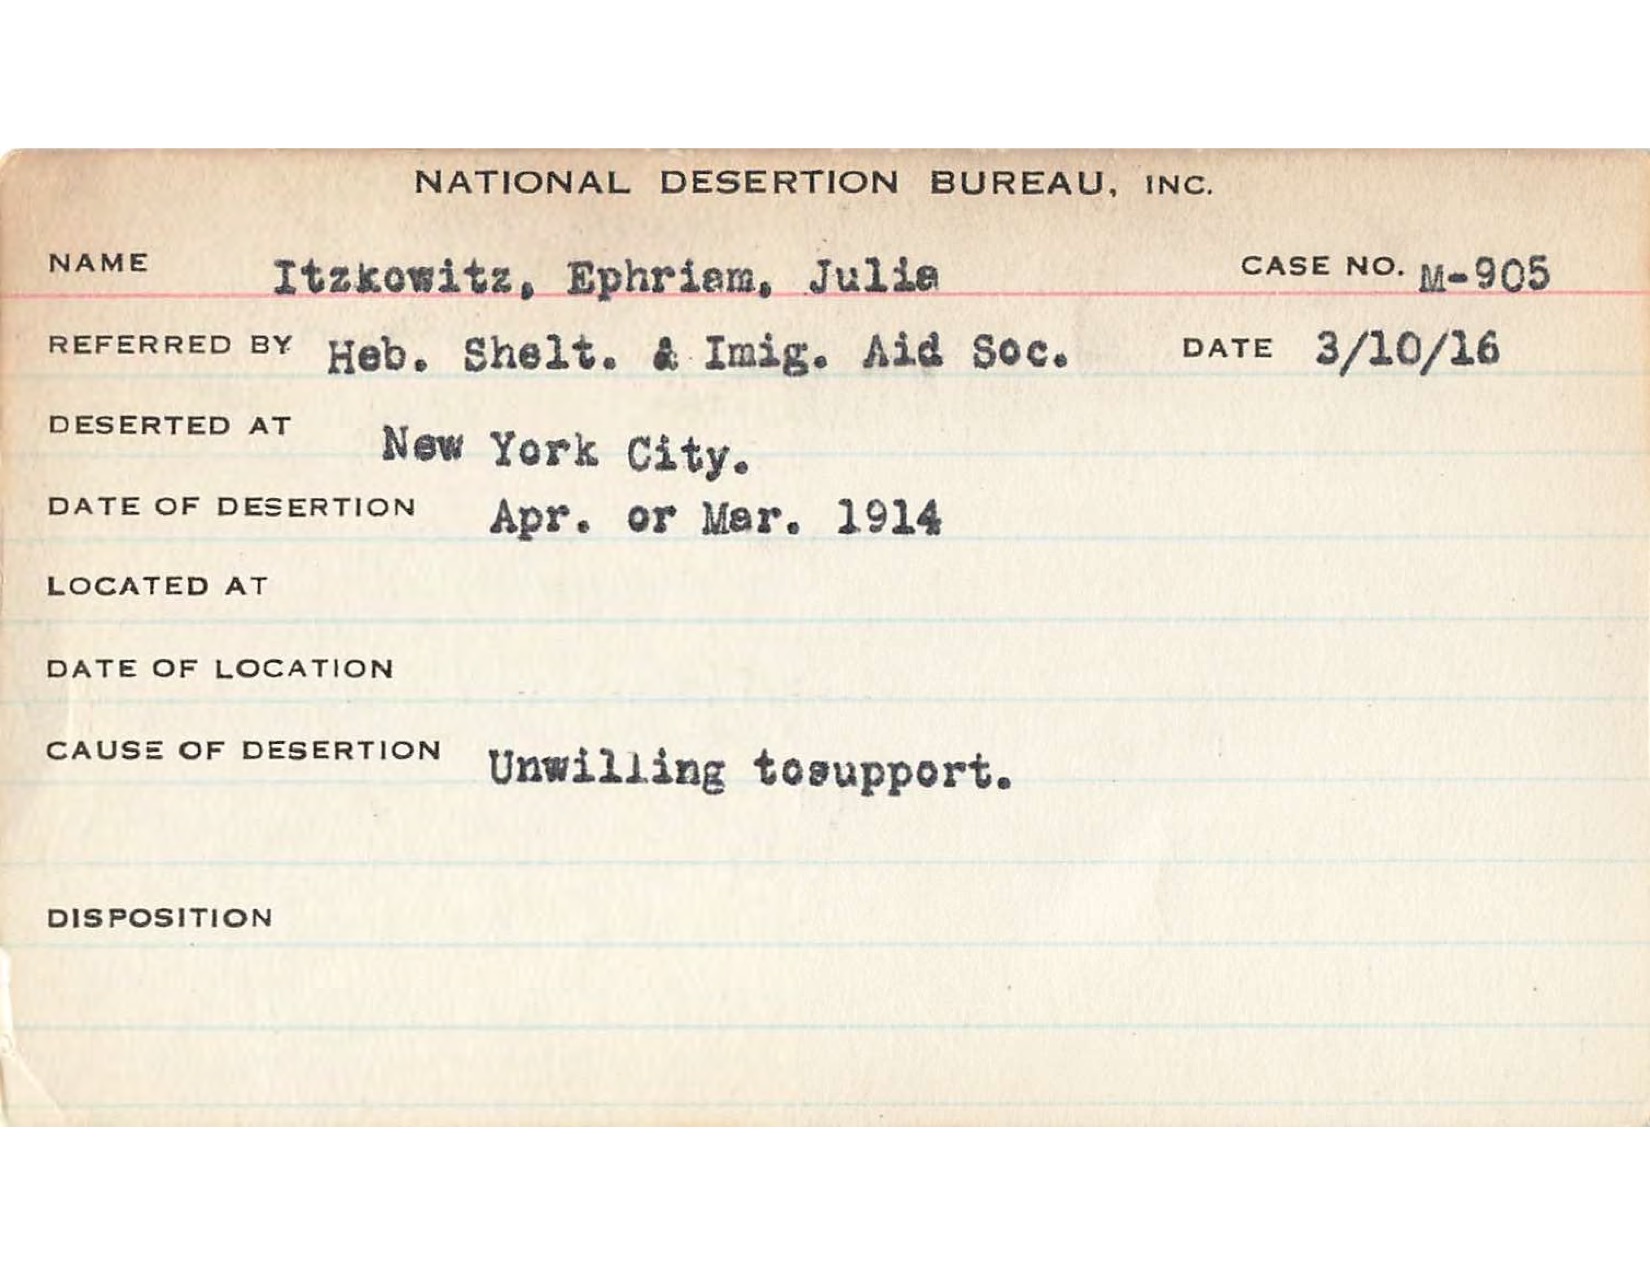 NATIONAL DESERTION BUREAU, INC.
NAME Itzkowitz, Ephriam, Julia CASE NO. M-905
REFERRED BY Heb. Shelt. & Imig. Aid Soc. DATE 3/10/16
DESERTED AT New York City.
DATE OF DESERTION Apr. or Mar. 1914
LOCATED AT
DATE OF LOCATION
CAUSE OF DESERTION Unwilling tosupport.
DISPOSITION